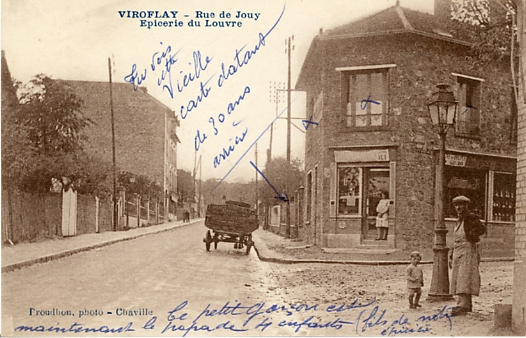 VIROFLAY - Rue de Jouy
Epicerie du Louvre
Tu vois cette
Vieille
carte datant
de 30 ans
arrière
ICI
Proudhon, photo - Chaville
Le petit garçon est
maintenant le papa de 4 enfants (fils de notre
épicière